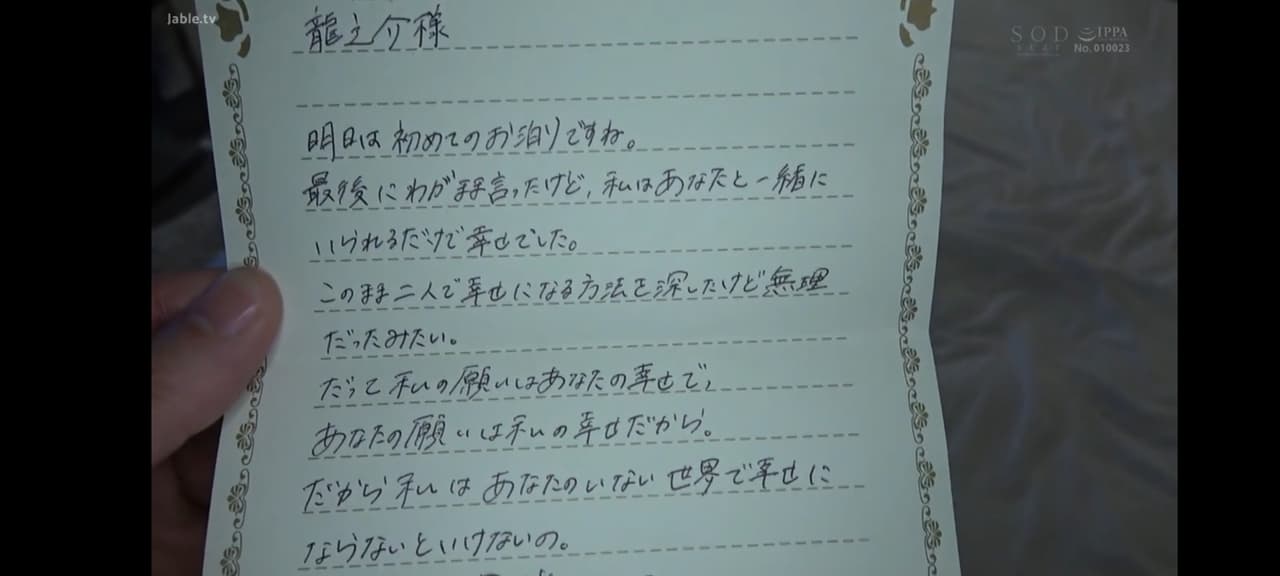 Jable.tv
SOD
IPPA
No.010023
龍之介様
明日は初めてのお泊りですね。
最後にわがまま言ったけど、私はあなたと一緒に
いられるだけで幸せでした。
このまま二人で幸せになる方法を探したけど無理
だったみたい。
だって私の願いはあなたの幸せで、
あなたの願いは私の幸せだから。
だから私はあなたのいない世界で幸せに
ならないといけないの。